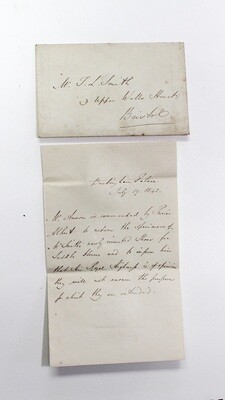 Mr. T. L. Smith
Upper Wells Street
Bristol
Buckingham Palace
July 19. 1842.
Mr. Anson is commanded by Prince
Albert to return the Specimens of
Mr Smith's newly invented Shoes for
Saddle Horses and to inform him
that His Royal Highness is of opinion
they will not answer the purpose
for which they are intended.